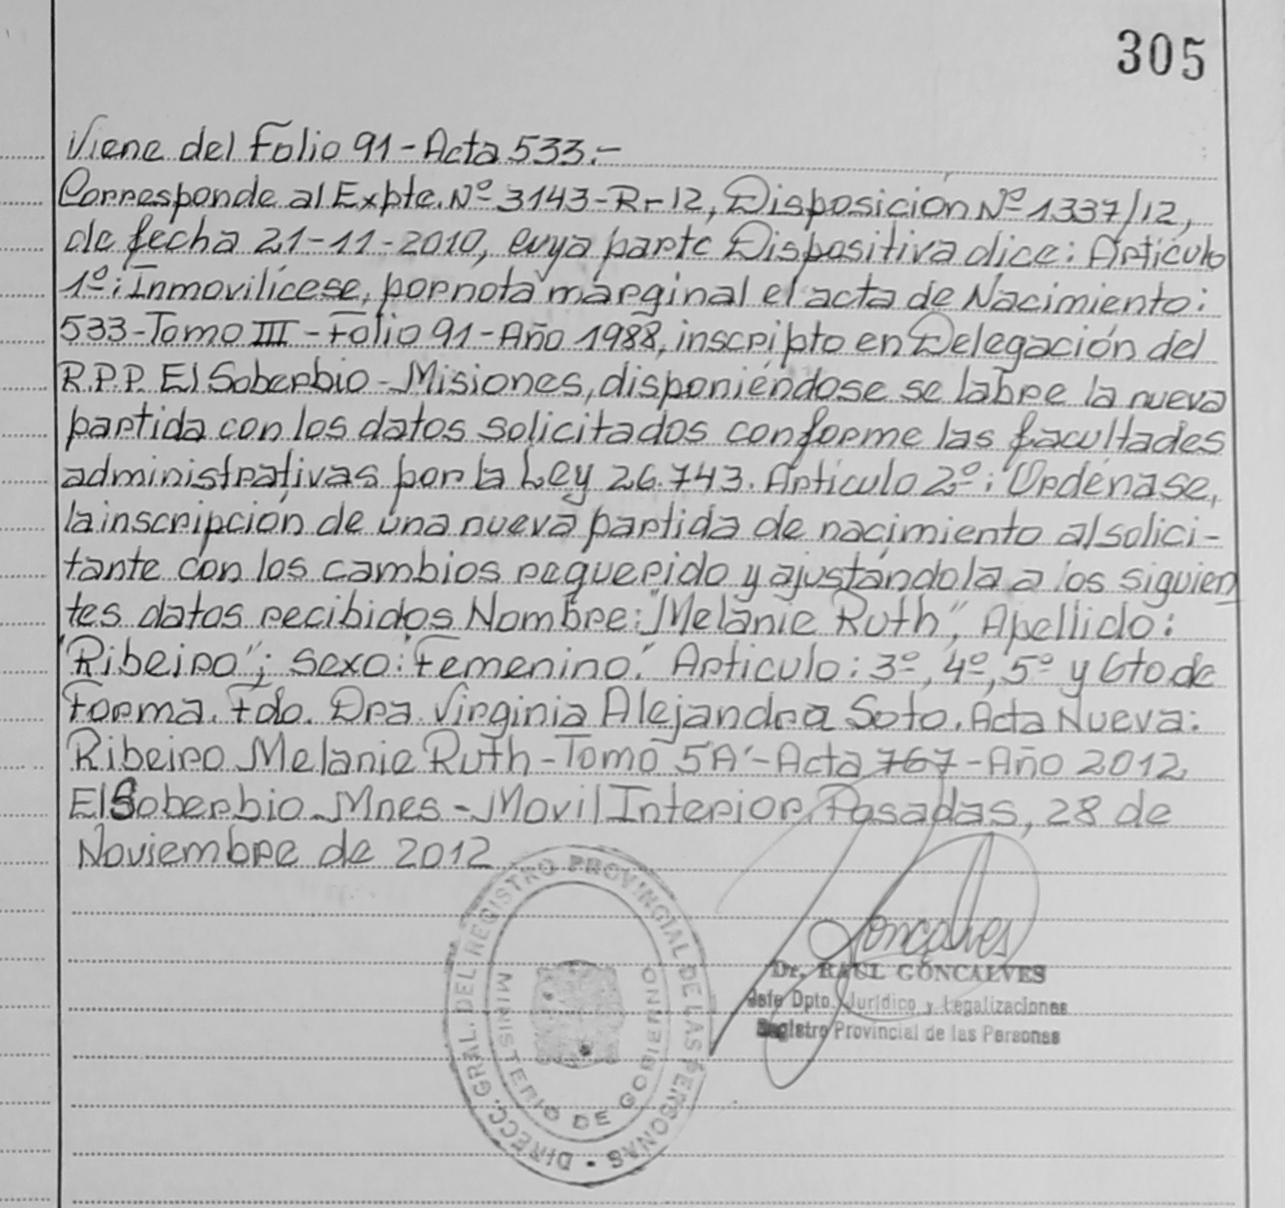 305
Viene del Folio 91-Acta 533.-
Corresponde al Expte. Nº 3143-R-12, Disposición Nº 1337/12,
de fecha 21-11-2010, cuya parte Dispositiva dice: Artículo
1º: Inmovilícese, por nota marginal el acta de Nacimiento:
533-Tomo III-Folio 91-Año 1988, inscripto en Delegación del
R.P.P. El Soberbio-Misiones, disponiéndose se labre la nueva
partida con los datos solicitados conforme las facultades
administrativas por la Ley 26.743. Artículo 2º: Ordénase,
la inscripción de una nueva partida de nacimiento al solici-
tante con los cambios requerido y ajustándola a los siguien
tes datos recibidos Nombre: "Melanie Ruth", Apellido:
"Ribeiro"; sexo: Femenino. Artículo: 3º, 4º, 5º y 6to de
Forma. Fdo. Dra. Virginia Alejandra Soto. Acta Nueva:
Ribeiro Melanie Ruth-Tomo 5"A"-Acta 767-Año 2012
El Soberbio Mnes-Movil Interior, Posadas, 28 de
Noviembre de 2012
DIRECC. GRAL. DEL REGISTRO PROVINCIAL DE LAS PERSONAS
MINISTERIO DE GOBIERNO
Goncalves
Dr. RAUL GONCALVES
Jefe Dpto. Jurídico y Legalizaciones
Registro Provincial de las Personas